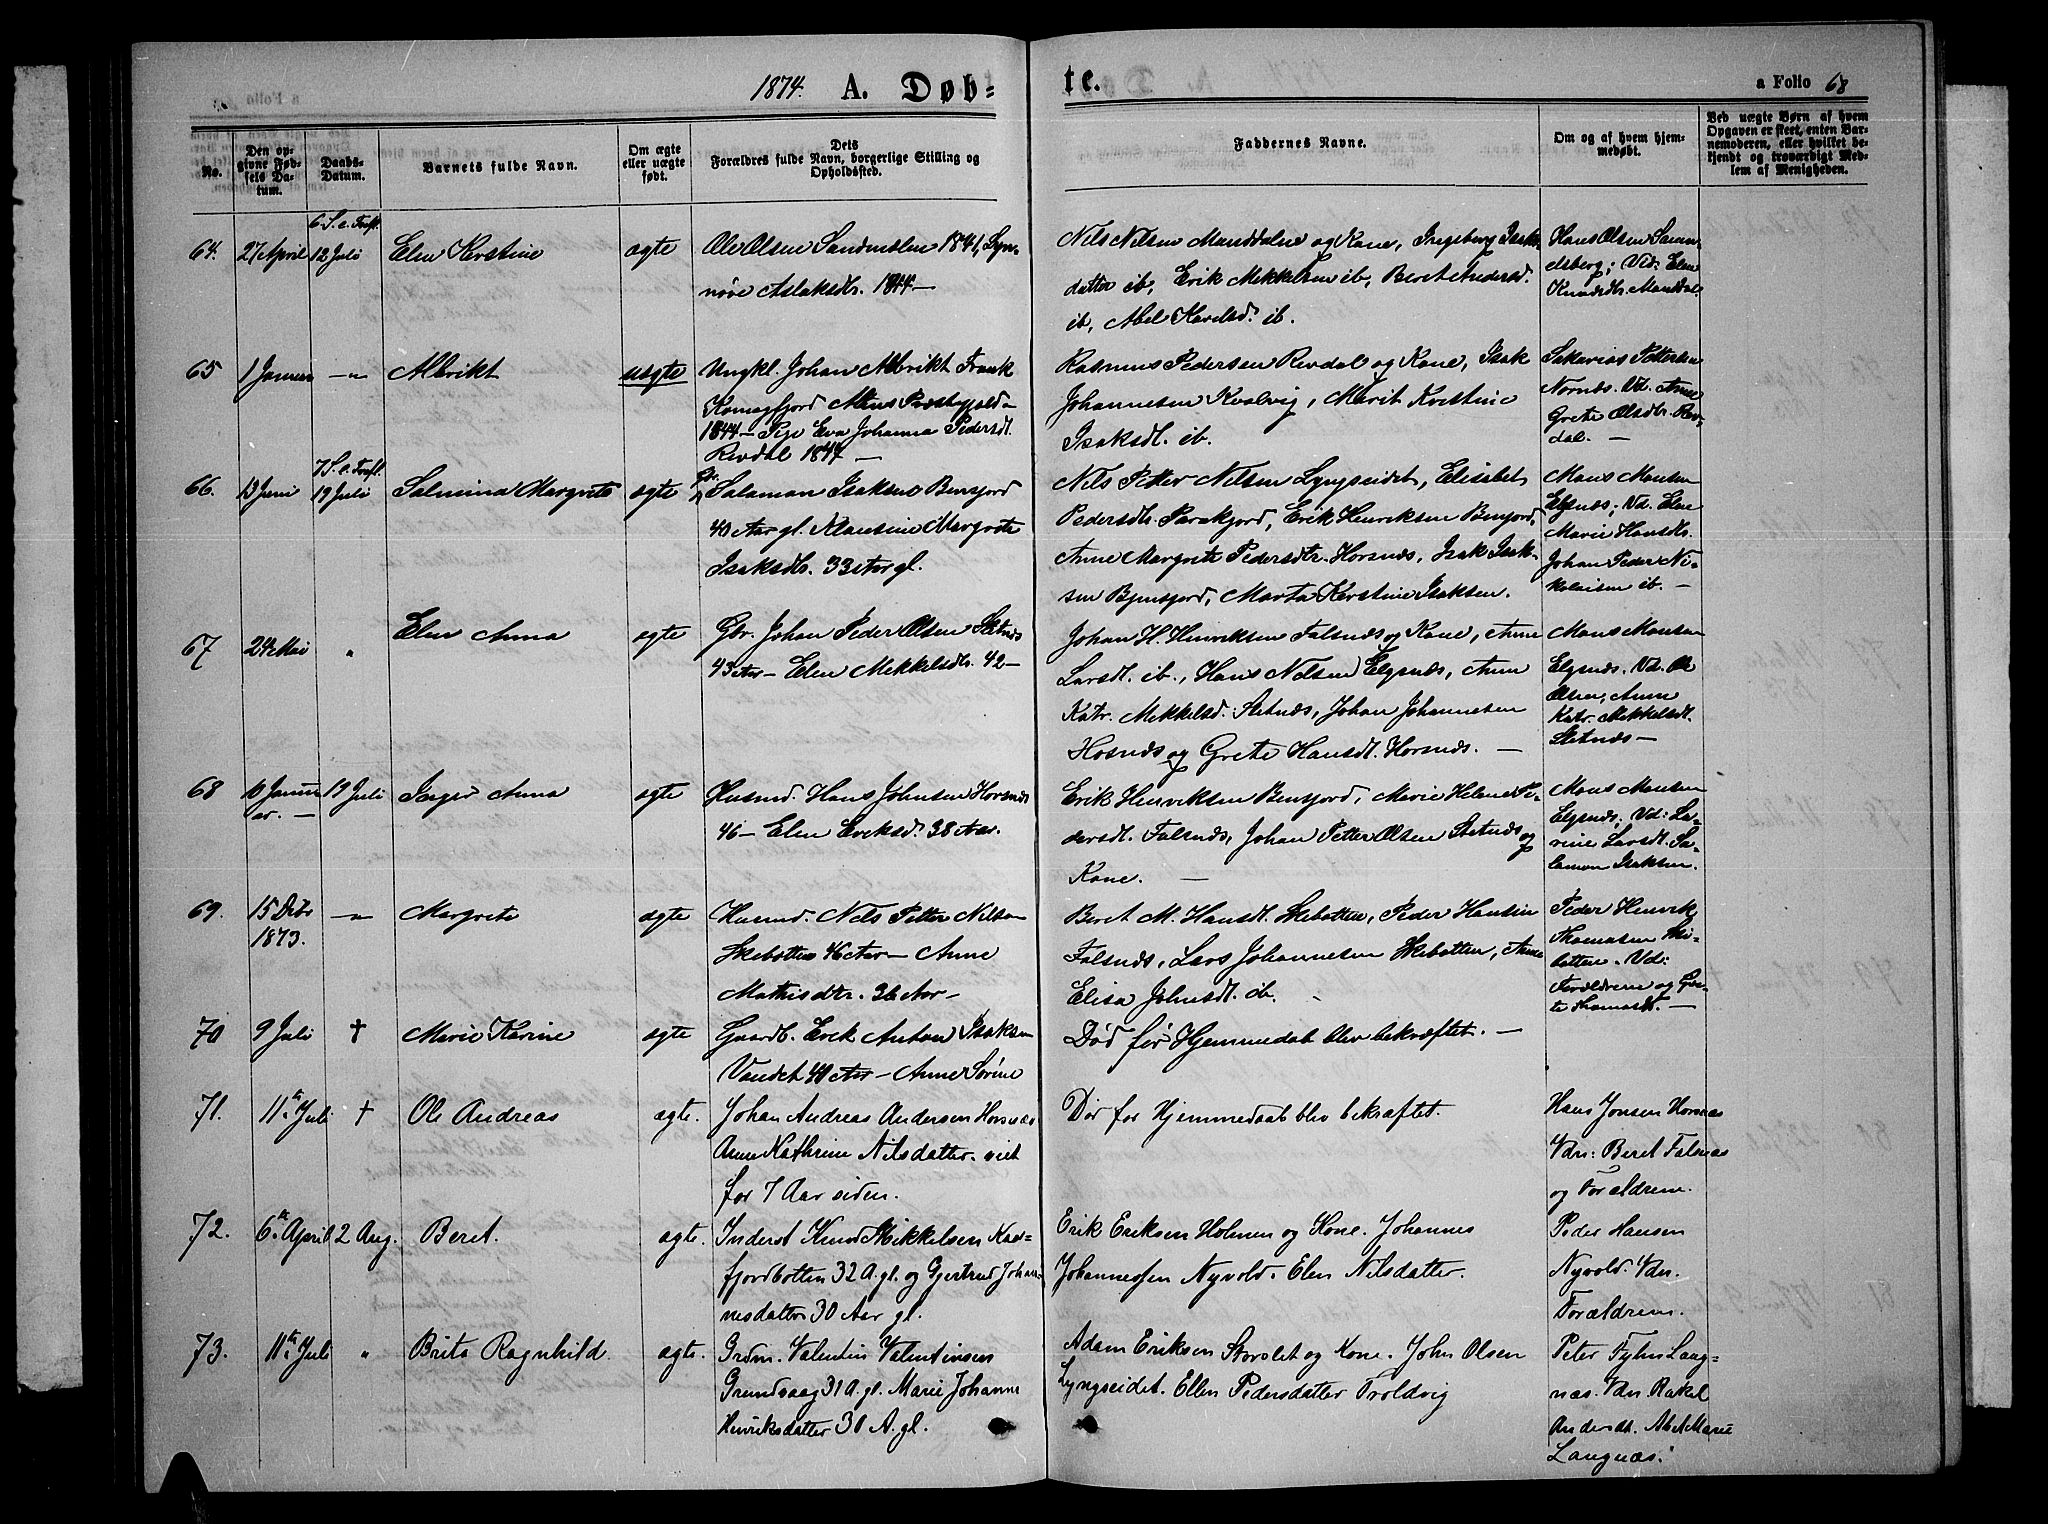 1874. A. Døb=
te.
a Folio 68
No.
Den op-
givne Fød-
sels Da-
tum.
Daabs-
Datum.
Barnets fulde Navn.
Om ægte
eller uægte
født.
Dets
Forældres fulde Navn, borgerlige Stilling og
Opholdssted.
Faddernes Navne.
Om og af hvem hjem-
medøbt.
Ved uægte Børn af hvem
Opgaven er skeet, enten Bar-
nemoderen, eller hvilket be-
kjendt og troværdigt Med-
lem af Menigheden.
6 S. e. Trefl.
64. 27 April 12 Juli Elen Kerstine ægte Ole Olsen Sandmolen 1841, Syn-
növe Aslaksdtr. 1844 —
Nils Nilsen Manddalen og Kone, Ingeborg Isaks-
datter ib, Erik Mikkelsen ib, Beret Andersd.
ib, Abel Karelsd. ib.
Hans Olsen Samu-
elsberg; Vid: Elen
Knudsdtr. Manddal.
65 1 Januar — " Albrikt uægte Ungkl. Johan Albrikt Frank
Komagfjord Altens Prestegjeld —
1844 — Pige Eva Johanna Pedersdt.
Revdal 1847 —
Rasmus Pedersen Revdal og Kone, Isak
Johannesen Kvalvig, Marit Kristine
Isaksdt. ib.
Sakarias Pettersen
Nornes. Vd. Anne
Grete Olsdtr. Rev-
dal. —
7 S. e. Trefl.
66. 13 Juni 19 Juli Salmina Margrete ægte Salamon Isaksen Bensjord
40 Aar gl. Klausine Margrete
Isaksdtr. 33 Aar gl.
Nils Petter Nilsen Lyngseidet, Elisabet
Pedersdtr. Parakjord, Erik Henriksen Bensjord,
Anne Margrete Pedersdtr. Horsnæs, Isak Isak-
sen Bensjord, Marta Kerstine Isaksen.
Mons Monsen
Elgsnæs; Vd. Elen
Marie Hansdtr.
Johan Peder Ni-
kolaisen ib. —
67 24 Mai " Elen Anna ægte Gbr. Johan Peder Olsen Sletnæs
43 Aar — Elen Mekkelsdtr. 42 —
Johan H. Henriksen Falsnæs og Kone, Anne
Larsdt. ib., Hans Nilsen Elgsnæs, Anne
Katr. Mekkelsd. Sletnæs, Johan Johannesen
Hosnæs og Grete Hansdt. Horsnæs. —
Mons Monsen
Elgsnæs. Vd. Ole
Olsen, Anne
Katr. Mekkelsdt.
Sletnæs —
68 10 Janu- 19 Juli Inger Anna ægte Husmd. Hans Johnsen Horsnæs
ar. —
46 — Elen Eriksd. 38 Aar.
Erik Henriksen Bensjord, Marie Helene Pe-
dersdt. Falsnæs, Johan Petter Olsen Sletnæs og
Kone. —
Mons Monsen
Elgsnæs; Vd: La-
rine Larsdt. Sa-
lamon Isaksen.
69. 15 Debr — " Margrete ægte Husmd. Nils Petter Nilsen
1873.
Skibotten 46 Aar — Anne
Mathisdtr. 36 Aar —
Beret M. Hansdt. Skibotten, Peder Hansen
Falsnæs, Lars Johannesen Skibotten, Anne
Elisa Johnsdt. ib.
Peder Henrik
Thomasen Ski-
botten. Vd:
Forældrene og Gre-
te Thomasdt. —
70 9 Juli † Marie Karine ægte Gaardb. Erik Anton Isaksen
Vandet 40 Aar — Anne Sørine
Død før Hjemmedaab blev bekræftet. —
71. 11te Juli † Ole Andreas ægte. Johan Andreas Andersen Horsnæs
Anne Kathrine Nilsdatter. viet
for 7 Aar siden.
Dør før Hjemmedaab blev bekræftet.
Hans Jonsen Horsnæs
Vdn: Beret Falsnæs
og Forældrene.
72. 6te April 2 Aug. Beret. ægte. Inderst Knud Mikkelsen Kaa-
fjordbotten 32 A. gl. og Gjertrud Johan-
nesdatter 30 Aar gl.
Erik Eriksen Holmen og Kone. Johannes
Johannessen Nyvold. Elen Nilsdatter.
Peder Hansen
Nyvold. Vdn.
Forældrene.
73. 11te Juli " Brita Ragnhild. ægte. Grdm. Valentin Valentinsen
Grundvaag 31 A. gl. Marie Johanne
Henriksdatter 30 A. gl.
Adam Eriksen Storslet og Kone. John Olsen
Lyngseidet. Ellen Pedersdatter Troldvig
Peter Fyhn Lang-
næs. Vdn. Rakel
Andersdt. Abel Marie
Langnæs.